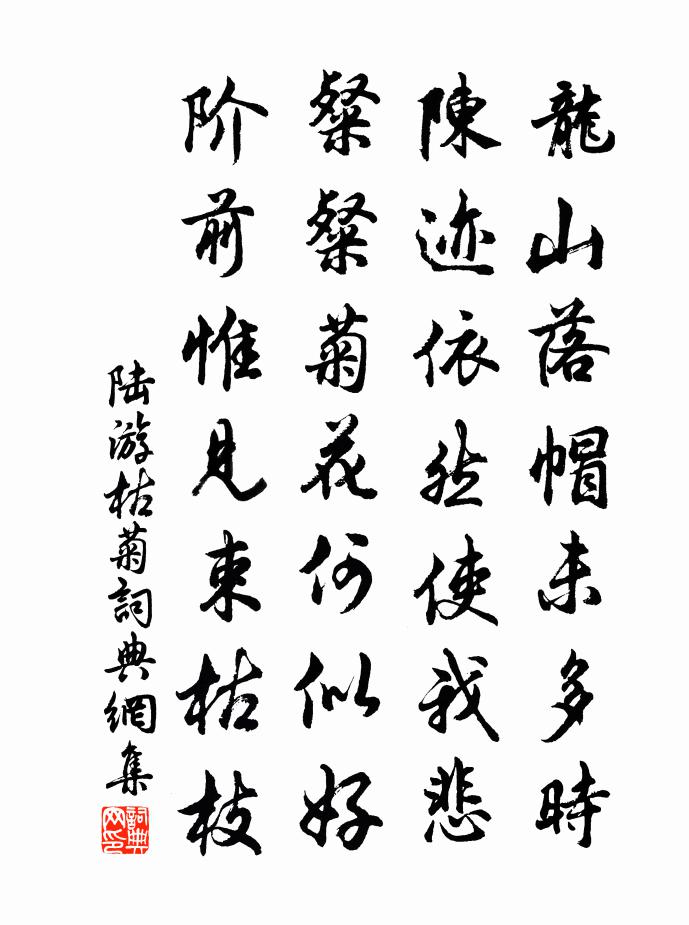 龍山落帽未多時
陳迹依然使我悲
粲粲菊花何似好
阶前惟見束枯枝
陆游枯菊詞典網集
詞典网印